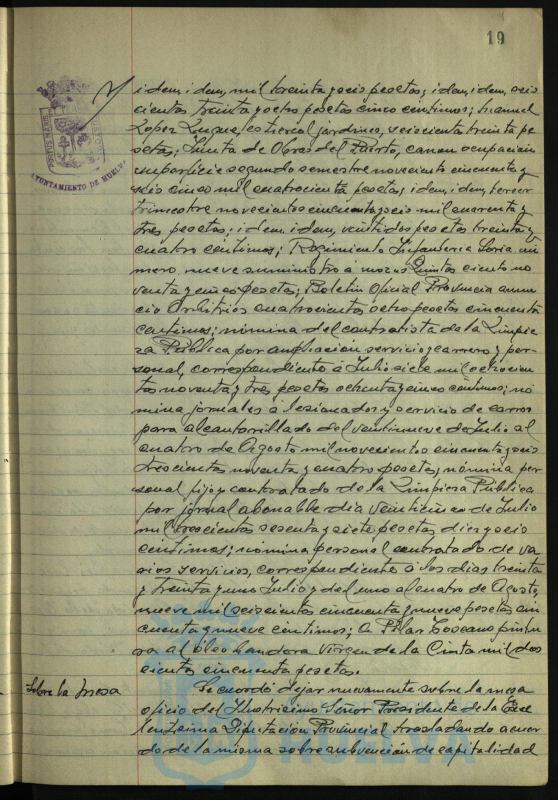 19
idem, idem, mil treinta y seis pesetas; idem, idem, seis
cientas treinta y ocho pesetas cinco centimos; Manuel
Lopez Luque, estiercol jardines, seiscienta treinta pe
setas; Junta de Obras del Puerto, canon ocupación
superficie segundo semestre novecientos cincuenta y
seis cinco mil cuatrocienta pesetas; idem, idem, tercer
trimestre novecientos cincuenta y seis mil cuarenta y
tres pesetas; idem, idem, veintidos pesetas treinta y
cuatro céntimos; Regimiento Infanteria Soria nú
mero, nueve suministro á mozos Quintas ciento no
venta y cinco pesetas; Boletin Oficial Provincia anun
cio Arbitrios cuatrocientas ocho pesetas cincuenta
centimos; nómina del contratista de la Limpie
za Pública por ampliación servicio y carrero y per-
sonal, correspondiente á Julio siete mil ochocien
tas noventa y tres pesetas ochenta y cinco céntimos; nó
mina jornales á lesionados y servicio de carros
para alcantarillado del veintinueve de Julio al
cuatro de Agosto mil novecientos cincuenta y seis
trescienta noventa y cuatro pesetas; nómina per
sonal fijo y contratado de la Limpieza Pública
por jornal abonable dia veinticinco de Julio
mil trescientas sesenta y siete pesetas diez y seis
centimos; nómina personal contratado de va
rios servicios, correspondiente á los dias treinta
y treinta y uno Julio y del uno al cuatro de Agosto,
nueve mil seiscientas cincuenta y nueve pesetas cin
cuenta y nueve centimos; a Pilar Toscano pintu
ra al óleo bandera Virgen de la Cinta mil dos
cientas cincuenta pesetas.
Sobre la mesa
Se acordó dejar nuevamente sobre la mesa
oficio del Ilustrisimo Señor Presidente de la Exce
lentisima Diputación Provincial trasladando acuer
do de la misma sobre subvención de capitalidad
AYUNTAMIENTO DE HUELVA
HUELVA